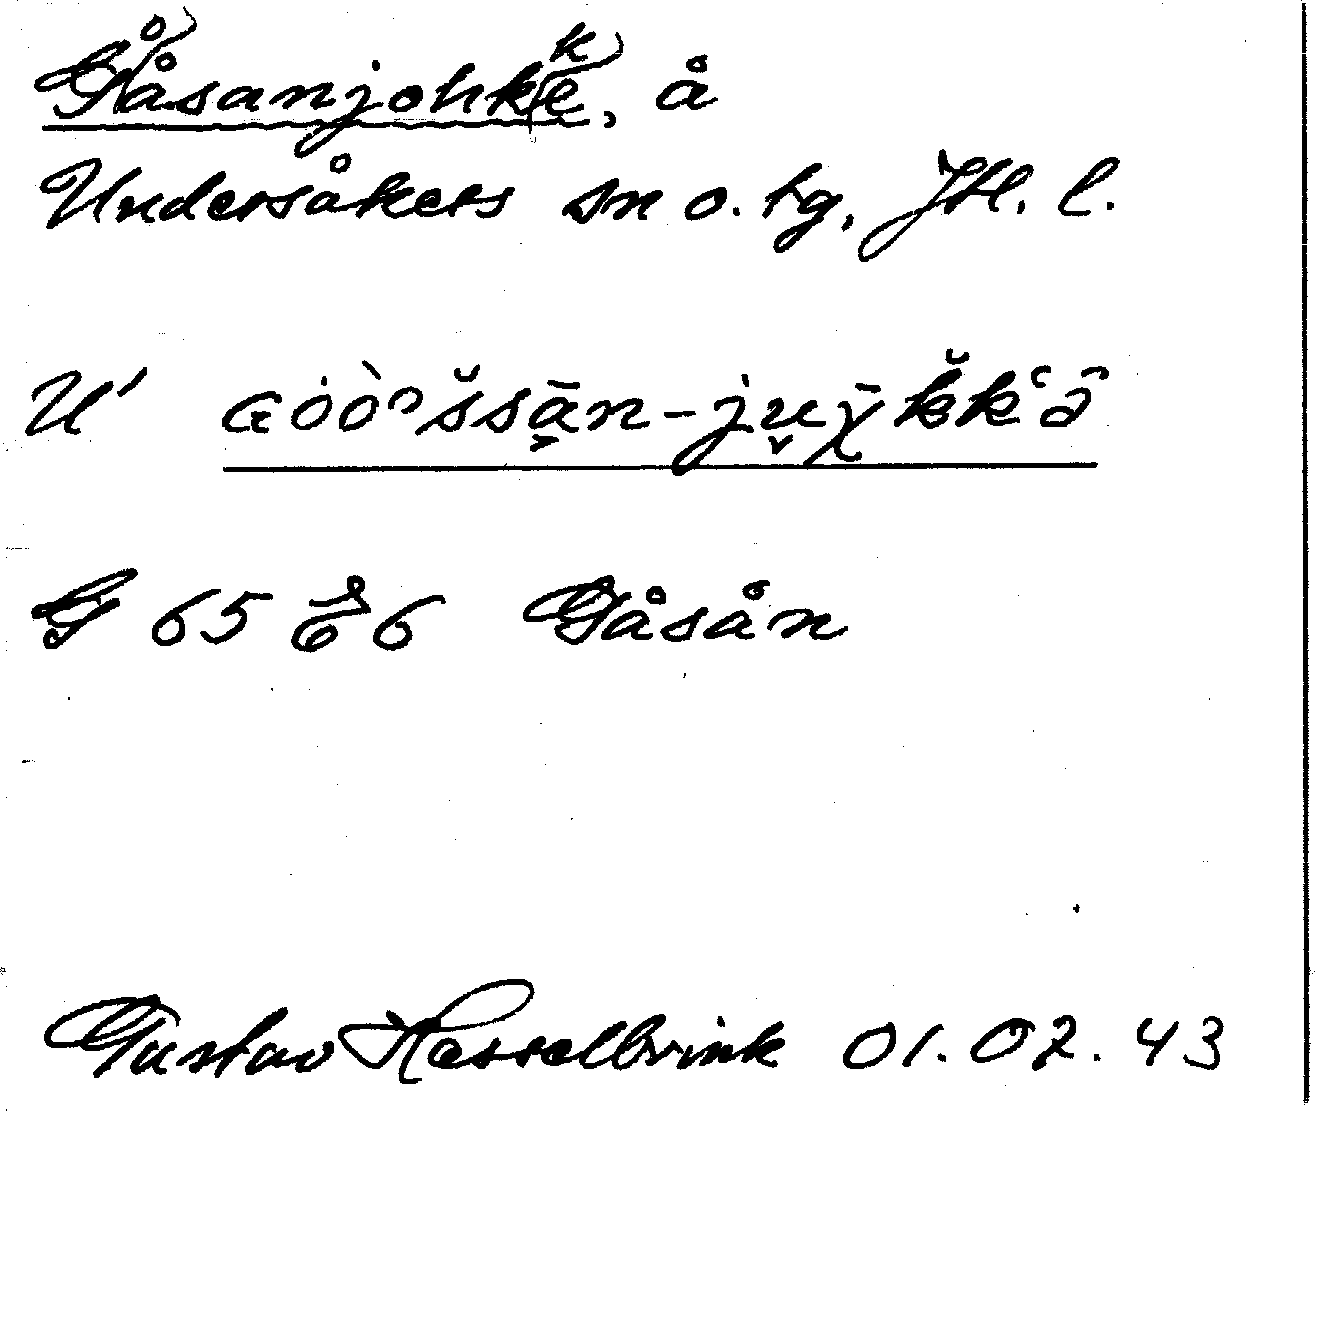 Gåsanjohke, å
Undersåkers sn o. tg, Jtl. l.
U'
G 65 6 Gåsån
Gustav Hasselbrink 01.02.43